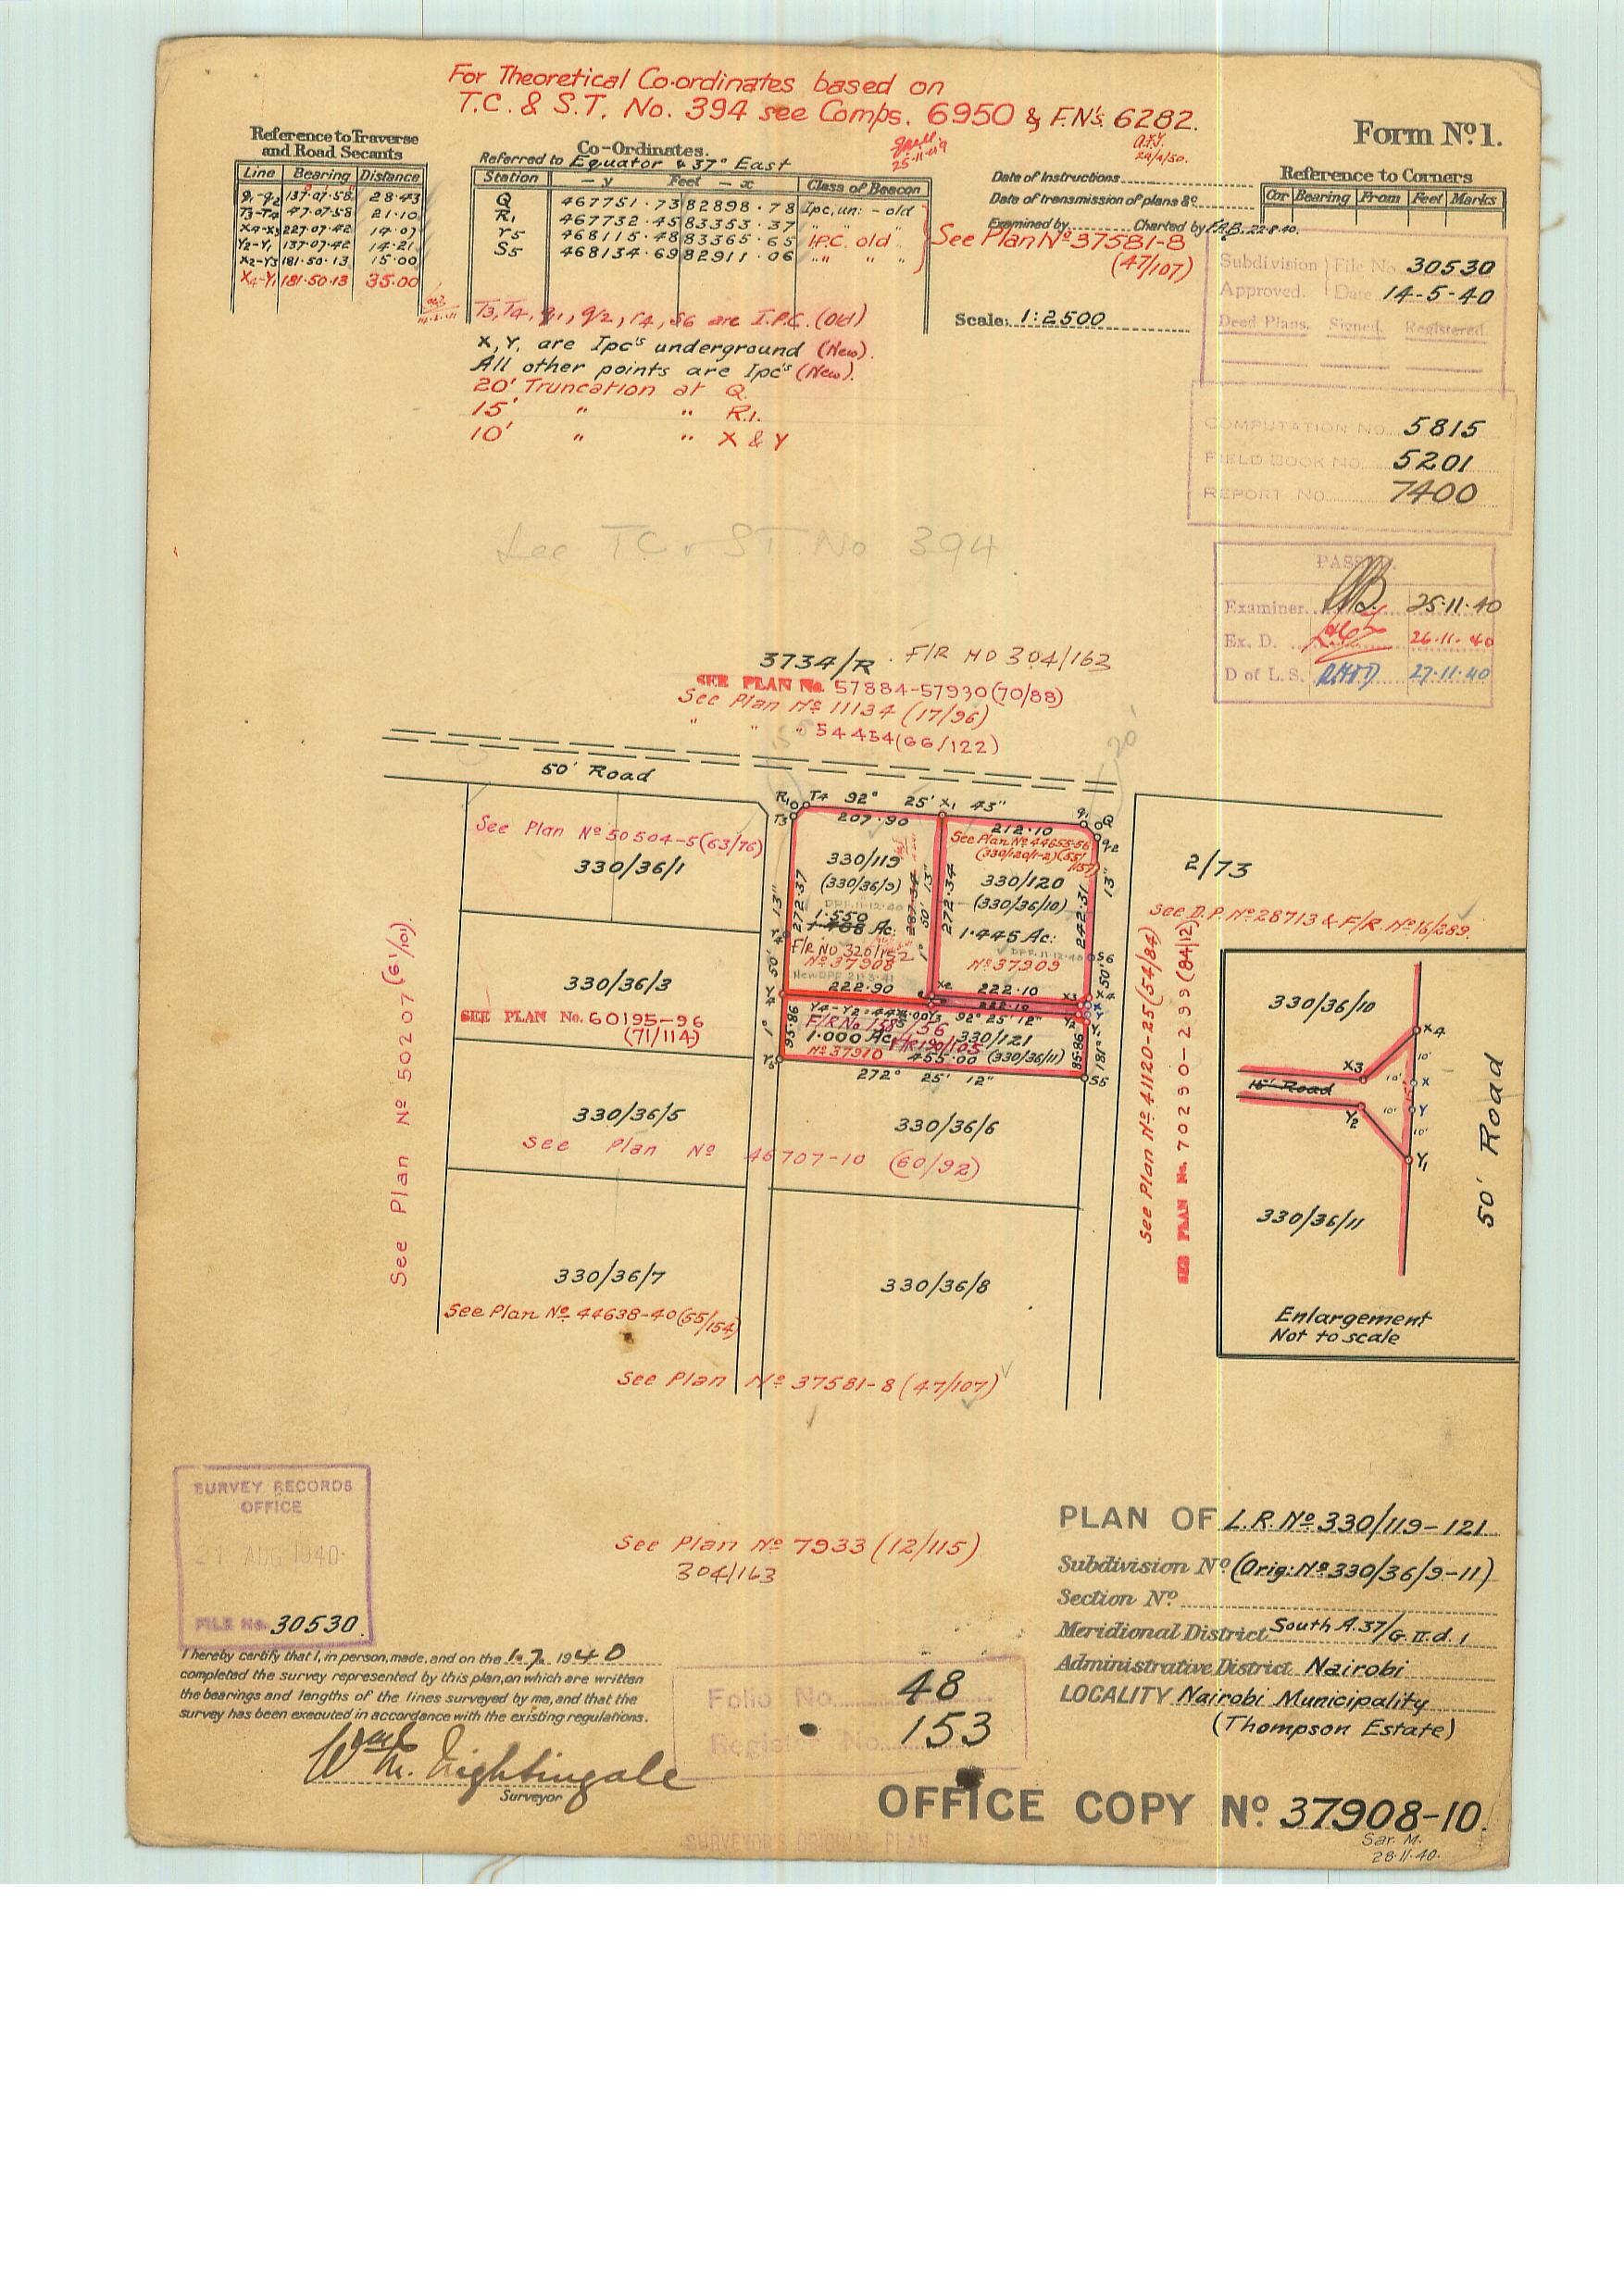 For Theoretical Co-ordinates based on
T.C. & S.T. No. 394 see Comps. 6950 & F.N's. 6282.
25-11-49
24/4/50.
Form Nº 1.
Reference to Traverse
and Road Secants
Line Bearing Distance
q1-q2 137·07·58 28·43
T3-T4 47·07·58 21·10
X4-X3 227·07·42 14·07
Y2-Y1 137·07·42 14·21
X2-Y3 181·50·13 15·00
X4-Y1 181·50·13 35·00
Co-Ordinates.
Referred to Equator & 37° East
Station - y Feet - x Class of Beacon
Q 467751·73 82898·78 Ipc, un: - old
R1 467732·45 83353·37 " " "
r5 468115·48 83365·65 I.P.C. old
S5 468134·69 82911·06 "" " "
See Plan Nº 37581-8
(47/107)
T3, T4, q1, q2, r4, S6 are I.P.C. (Old)
X, Y, are Ipc's underground (New).
All other points are Ipc's (New).
20' Truncation at Q.
15' " " R1.
10' " " X & Y
Date of Instructions
Date of transmission of plans &c
Examined by Charted by F.R.B. 22·8·40.
Scale: 1:2500
Reference to Corners
Cor Bearing From Feet Marks
Subdivision File No. 30530
Approved. Date 14-5-40
Deed Plans. Signed. Registered.
COMPUTATION NO. 5815
FIELD BOOK NO. 5201
REPORT NO. 7400
PASSED.
Examiner 25·11·40
Ex. D. 26·11·40
D of L.S. 27·11·40
See T.C. & S.T. No 394
3734/R F/R NO 304/163
SEE PLAN No. 57884-57930(70/88)
See Plan Nº 11134 (17/96)
" " " 54454(66/122)
50' Road
15'
20'
R1 T4 92° 25' X1 43"
q1 Q
T3
207·90
212·10
q2
See Plan Nº 50504-5(63/76)
330/36/1
See Plan Nº 44655-56
(330/120/1-2)(55/157)
330/119
(330/36/9)
1·550
1·468 Ac:
F/R NO 320/152
Nº 37908
New DPF 21·3·41
272·37
13"
50'
1°
330/120
(330/36/10)
1·445 Ac:
DPF. 11·12·40
Nº 37909
272·34
287·34
1° 50' 13"
242·31
13"
S6
50'
181°
2/73
See D.P. Nº 28713 & F/R. Nº 16/289.
330/36/3
SEE PLAN No. 60195-96
(71/114)
222·90
222·10
222·10
X2
X3
X4
Y4
Y2
Y1
Y4-Y2=445·00
92° 25' 12"
F/R No 158/56
1·000 Ac
330/121
F/R 190/105
Nº 37910
455·00 (330/36/11)
95·86
85·86
272° 25' 12"
S5
330/36/5
330/36/6
See Plan Nº 46707-10 (60/92)
330/36/7
330/36/8
See Plan Nº 44638-40(55/154)
See Plan Nº 37581-8 (47/107)
See Plan Nº 50207 (61/101).
See Plan Nº 41120-25(54/84)
SEE PLAN No. 70290-299(84/12)
330/36/10
X4
10'
X3
10'
X
15' Road
15'
Y
10'
Y2
10'
Y1
330/36/11
50' Road
Enlargement
Not to scale
See Plan Nº 7933 (12/115)
304/163
SURVEY RECORDS
OFFICE
21 AUG 1940
FILE No. 30530.
I hereby certify that I, in person, made, and on the 1·7· 1940
completed the survey represented by this plan, on which are written
the bearings and lengths of the lines surveyed by me, and that the
survey has been executed in accordance with the existing regulations.
Wm. Nightingale
Surveyor
Folio No. 48
Register No. 153
PLAN OF L.R. Nº 330/119-121
Subdivision Nº (Orig: Nº 330/36/9-11)
Section Nº
Meridional District South A.37/G II.d.1
Administrative District Nairobi
LOCALITY Nairobi Municipality
(Thompson Estate)
OFFICE COPY Nº 37908-10.
Sar. M.
28·11·40.
SURVEYOR'S ORIGINAL PLAN